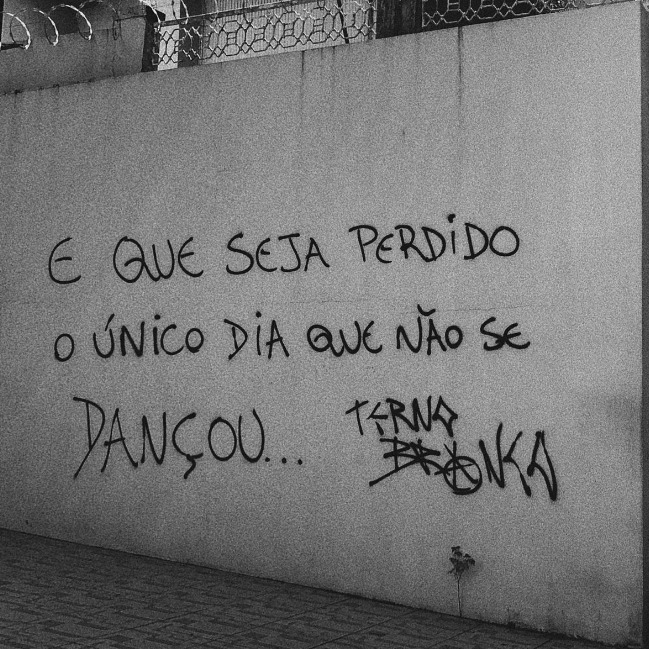 E QUE SEJA PERDIDO
O ÚNICO DIA QUE NÃO SE
DANÇOU...
TERNO